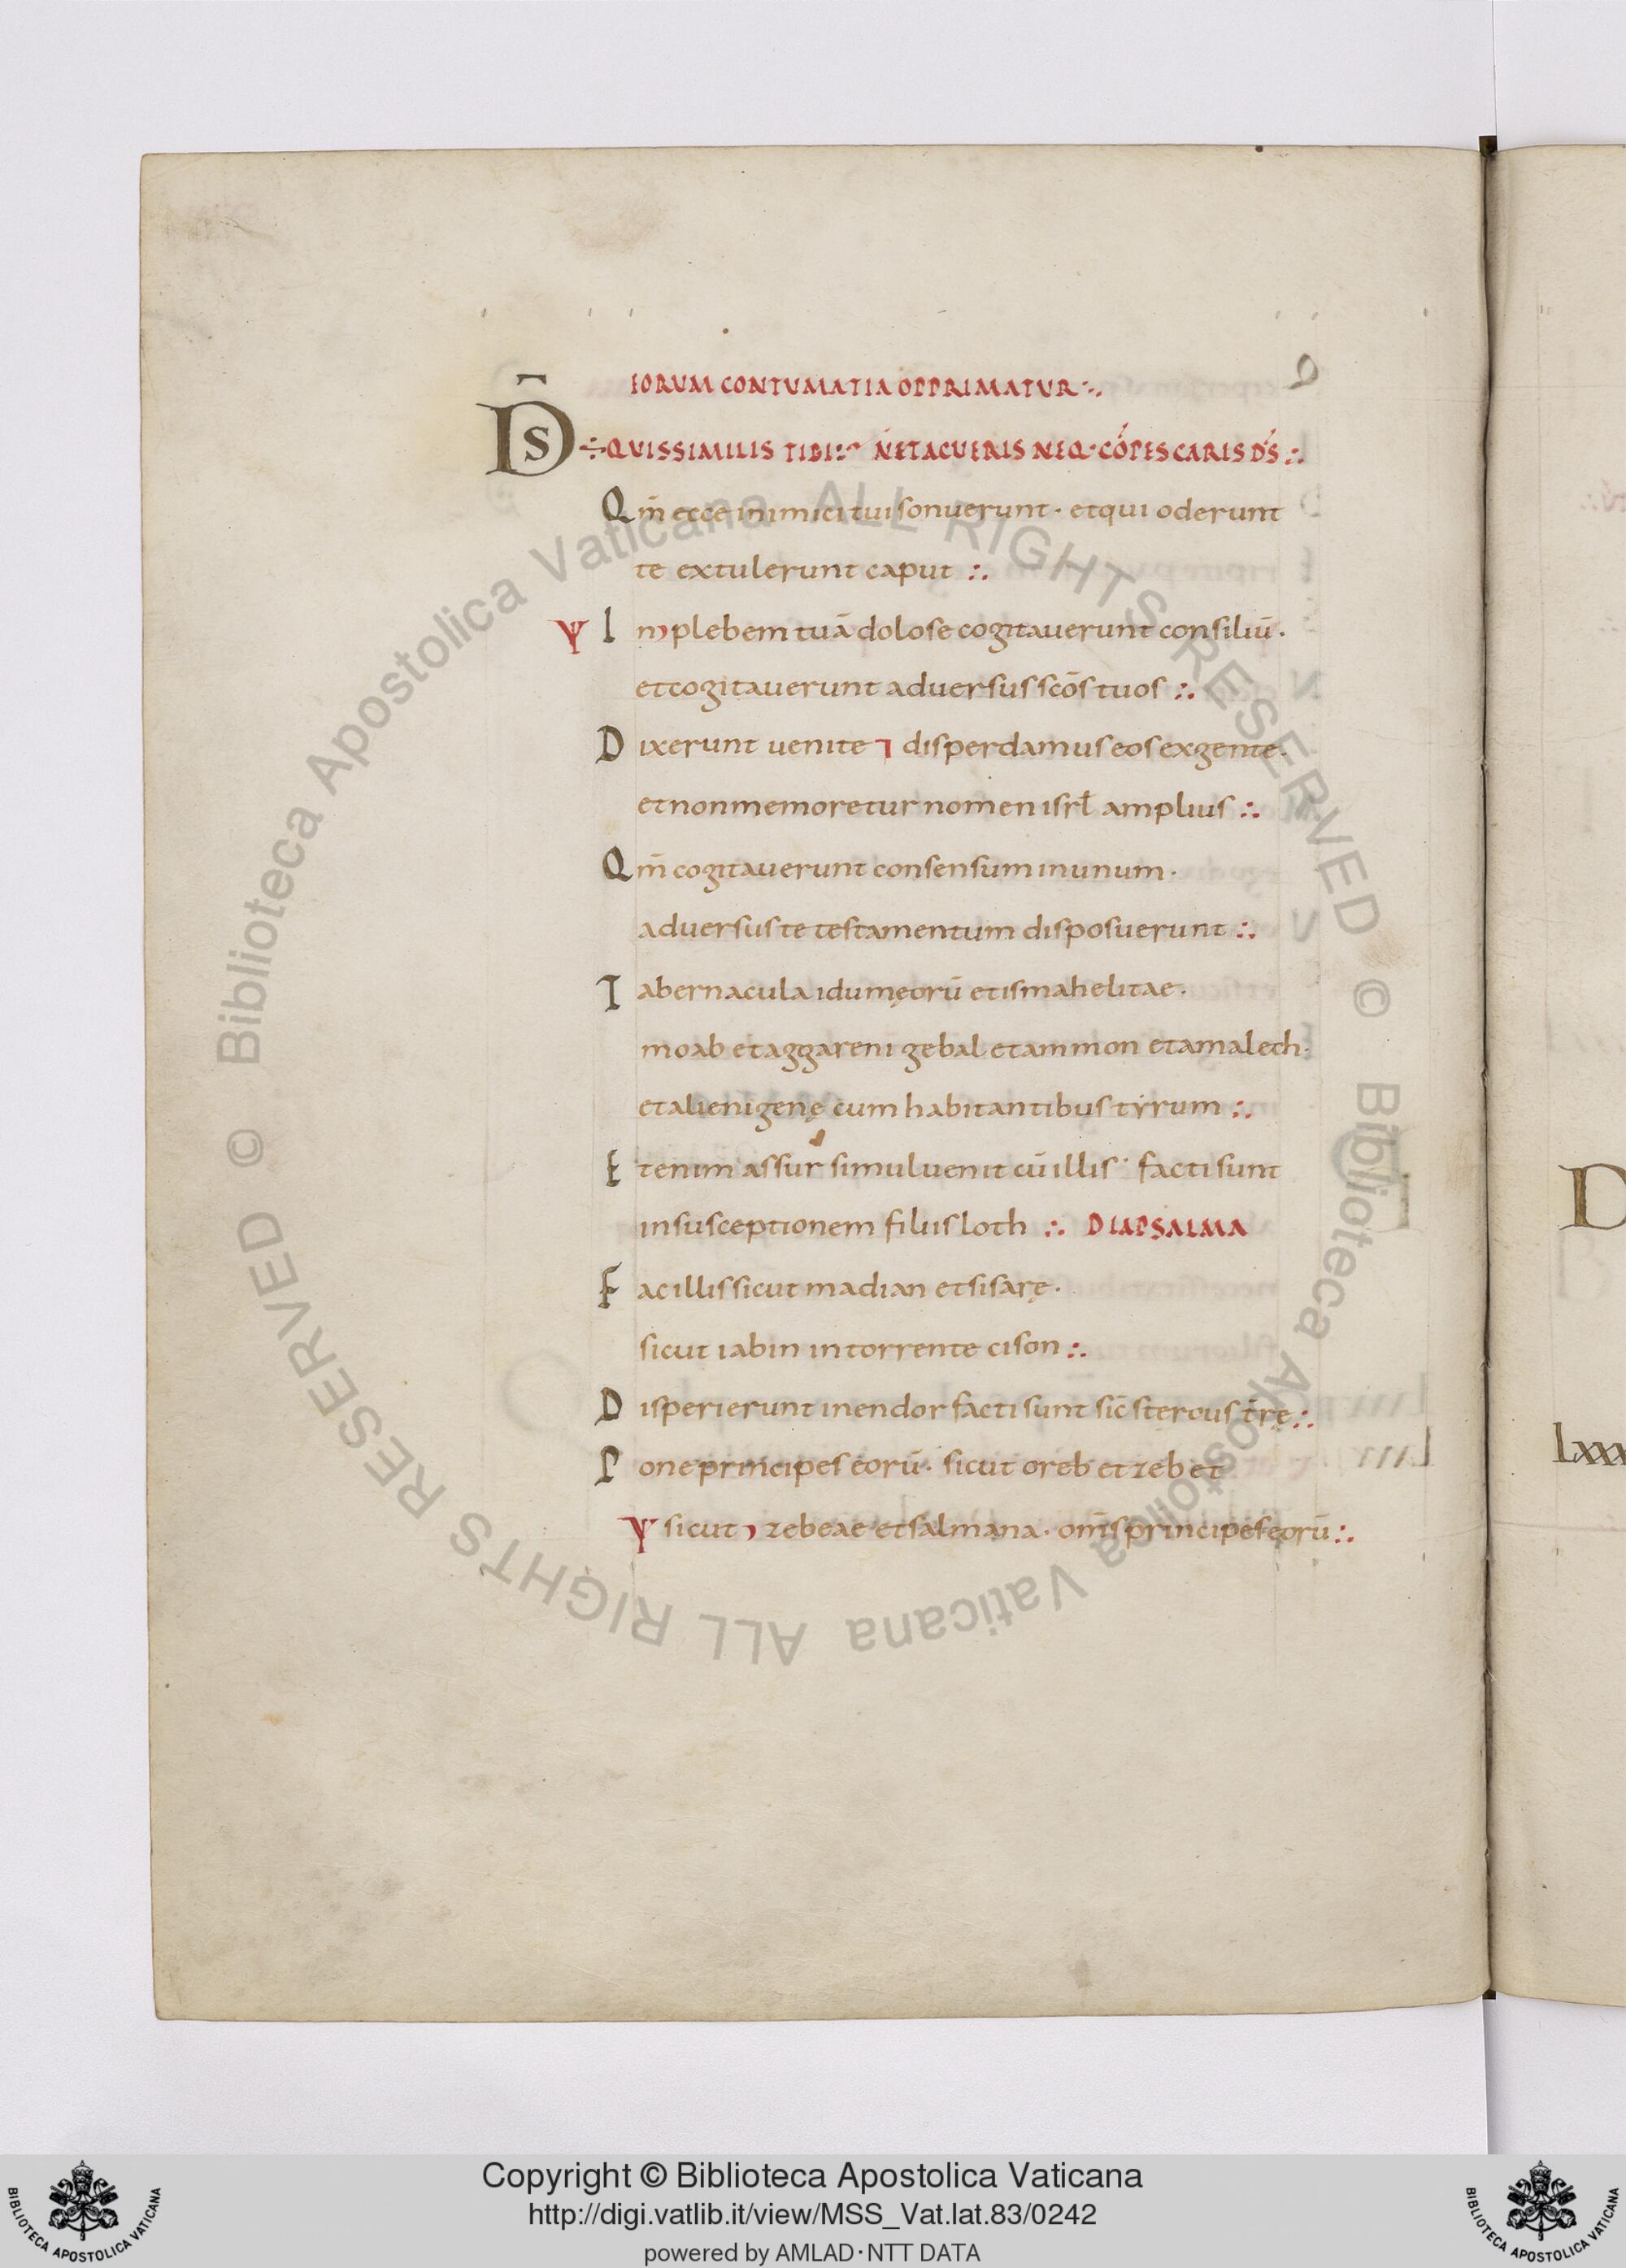 IORUM CONTUMATIA OPPRIMATUR ∴
D̄S ÷ QUIS SIMILIS TIBI : NE TACUERIS NEQ· CÓPESCARIS D̄S ∴
Qm̄ ecce inimici tui sonuerunt · et qui oderunt
te extulerunt caput ∴
Ψ In plebem tuā dolose cogitauerunt consiliū ·
et cogitauerunt aduersus scōs tuos ∴
Dixerunt uenite ⁊ disperdamus eos ex gente ·
et non memoretur nomen isrł amplius ∴
Qm̄ cogitauerunt consensum in unum ·
aduersus te testamentum disposuerunt ∴
Tabernacula idumęorū et ismahelitae ·
moab et aggareni gebal et ammon et amalech ·
et alienigenę cum habitantibus tyrum ∴
Etenim assur simul uenit cū illis · facti sunt
in susceptionem filiis loth ∴ DIAPSALMA
Fac illis sicut madian et sisarę ·
sicut iabin in torrente cison ∴
Disperierunt in endor facti sunt sic̄ stercus t̄rę ∴
Pone principes eorū · sicut oreb et zeb et
Ψ sicut zebeae et salmana · om̄s principes eorū ∴
D
Lxxx
© Biblioteca Apostolica Vaticana ALL RIGHTS RESERVED © Biblioteca Apostolica Vaticana ALL RIGHTS RESERVED
Copyright © Biblioteca Apostolica Vaticana
http://digi.vatlib.it/view/MSS_Vat.lat.83/0242
powered by AMLAD·NTT DATA
BIBLIOTECA APOSTOLICA VATICANA
BIBLIOTECA APOSTOLICA VATICANA